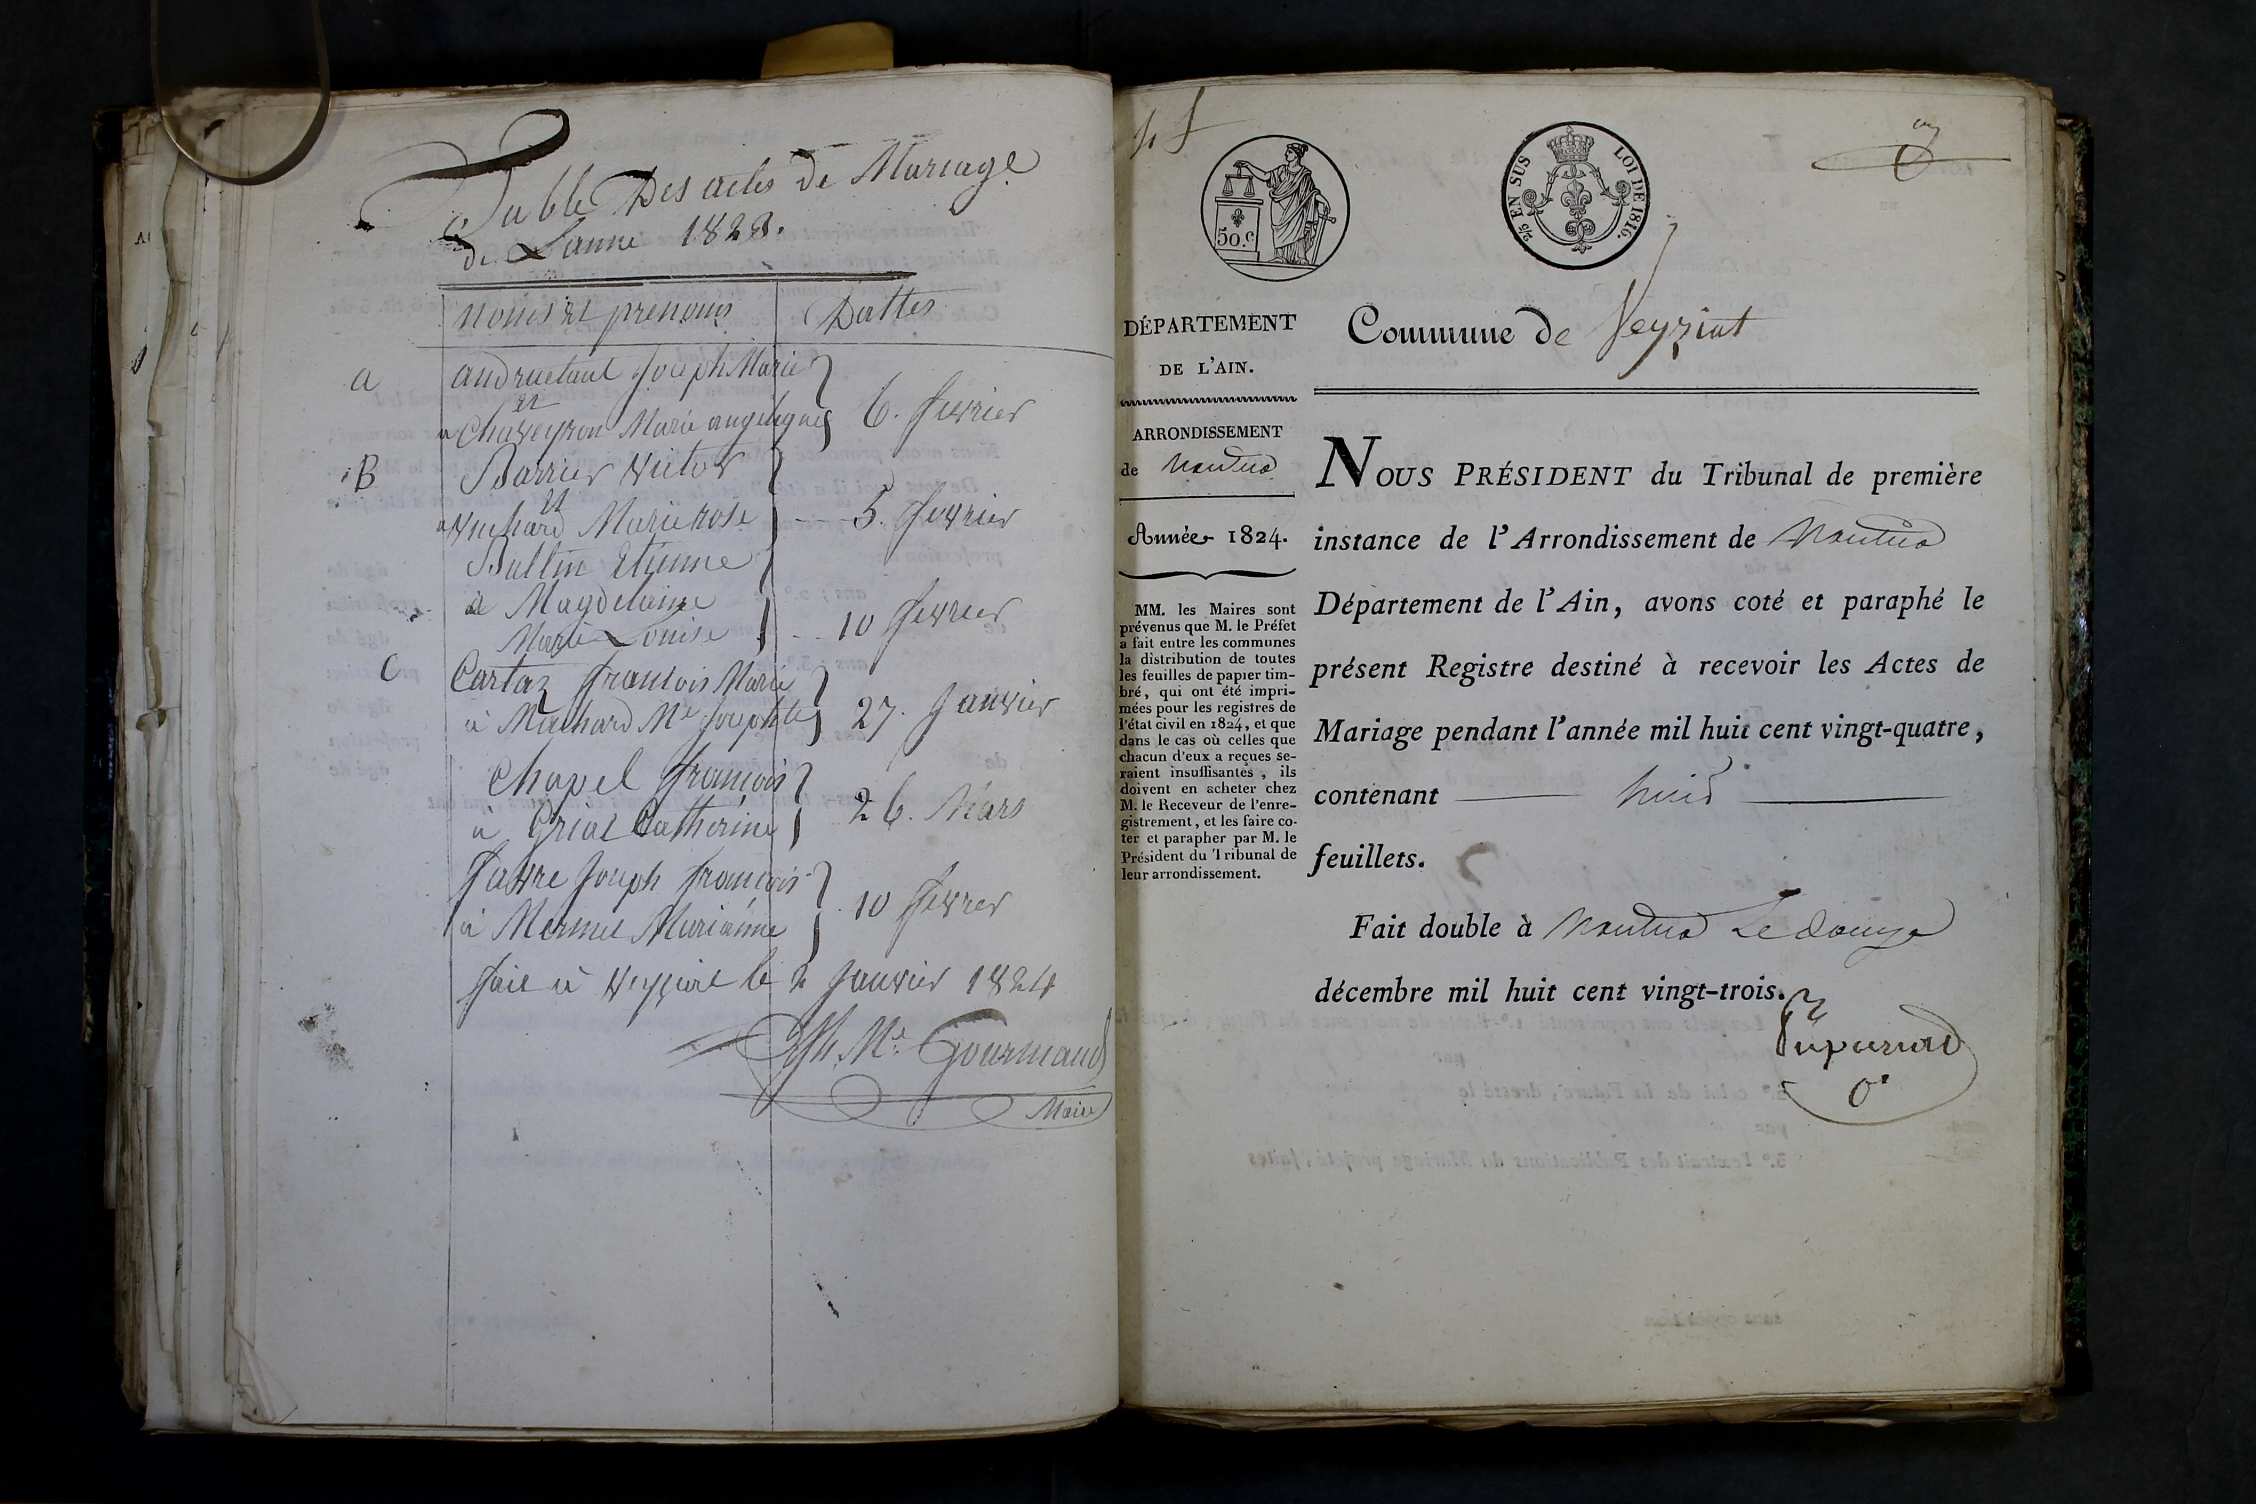 Table Des actes de Mariage
de Lanne 1823.
noms et prenoms Dattes
a andruetant Joseph Marie
et
a Chaveyron Marie angelique 6. fevrier
B Barrier Victor
et
a Vuchard Marie rose 5. fevrier
Bullin Etienne
a Magdelaine
Marie Louise 10 fevrier
C Cartaz francois Marie
à Machard Me Josephte 27. Janvier
Chapel françois
à Griat Catherine 26. Mars
favre Joseph françois
à Mermet Marianne 10 fevrer
fait à Veyziat le 2 Janvier 1824
Jph. Me. Gourmand
Maire
50.c
2/5 EN SUS LOI DE 1816.
DÉPARTEMENT
DE L'AIN.
ARRONDISSEMENT
de Nantua
Année 1824.
MM. les Maires sont
prévenus que M. le Préfet
a fait entre les communes
la distribution de toutes
les feuilles de papier tim-
bré, qui ont été impri-
mées pour les registres de
l'état civil en 1824, et que
dans le cas où celles que
chacun d'eux a reçues se-
raient insuffisantes, ils
doivent en acheter chez
M. le Receveur de l'enre-
gistrement, et les faire co-
ter et parapher par M. le
Président du Tribunal de
leur arrondissement.
Commune de Veyziat
NOUS PRÉSIDENT du Tribunal de première
instance de l'Arrondissement de Nantua
Département de l'Ain, avons coté et paraphé le
présent Registre destiné à recevoir les Actes de
Mariage pendant l'année mil huit cent vingt-quatre,
contenant huit
feuillets.
Fait double à Nantua Le douze
décembre mil huit cent vingt-trois.